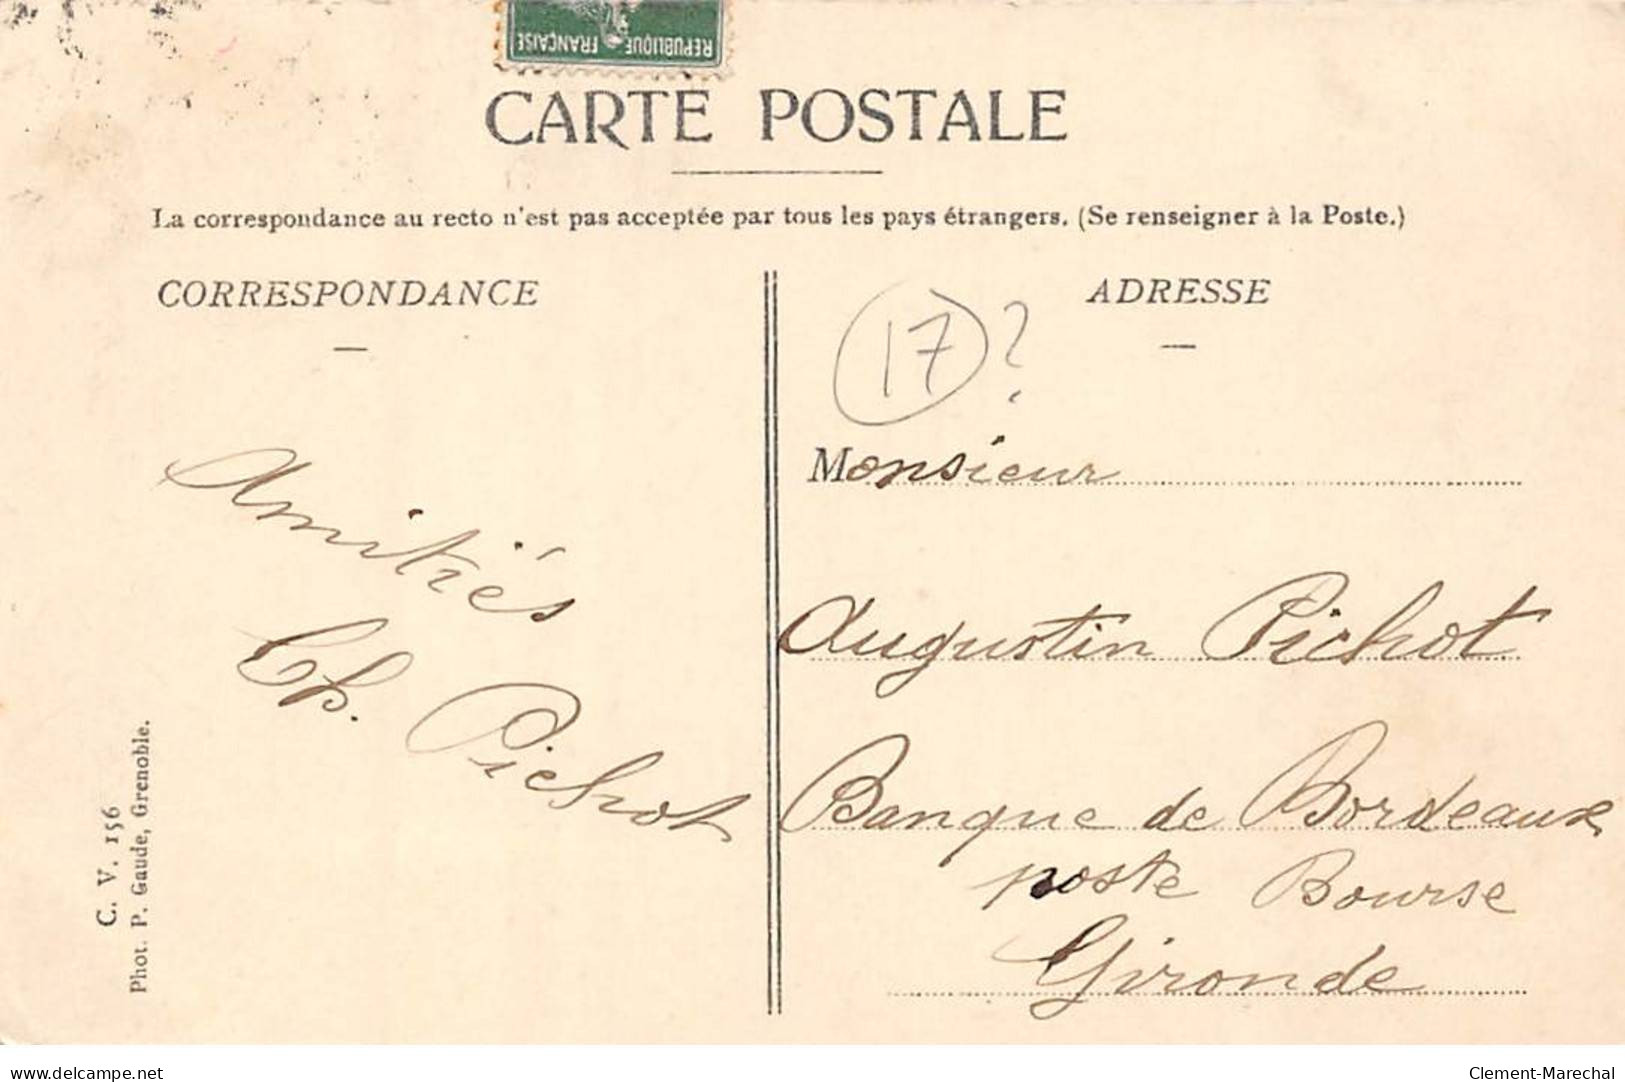 REPUBLIQUE FRANÇAISE
CARTE POSTALE
La correspondance au recto n'est pas acceptée par tous les pays étrangers. (Se renseigner à la Poste.)
CORRESPONDANCE
Amitiés
Ch. Pichot
C. V. 156
Phot. P. Gaude, Grenoble.
ADRESSE
17 ?
Monsieur
Augustin Pichot
Banque de Bordeaux
poste Bourse
Gironde
www.delcampe.net
Clement-Marechal